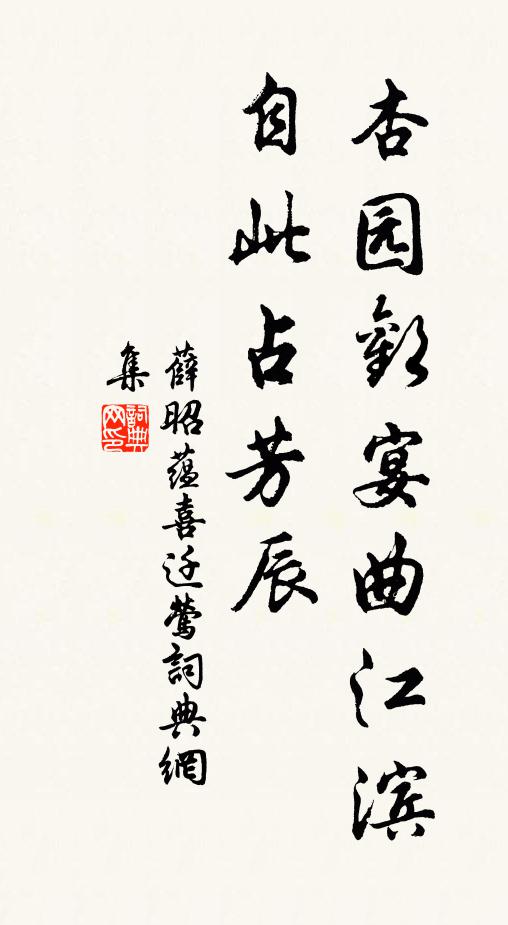 杏园歡宴曲江滨
自此占芳辰
薛昭蕴喜迁莺詞典網
集
詞典
网印